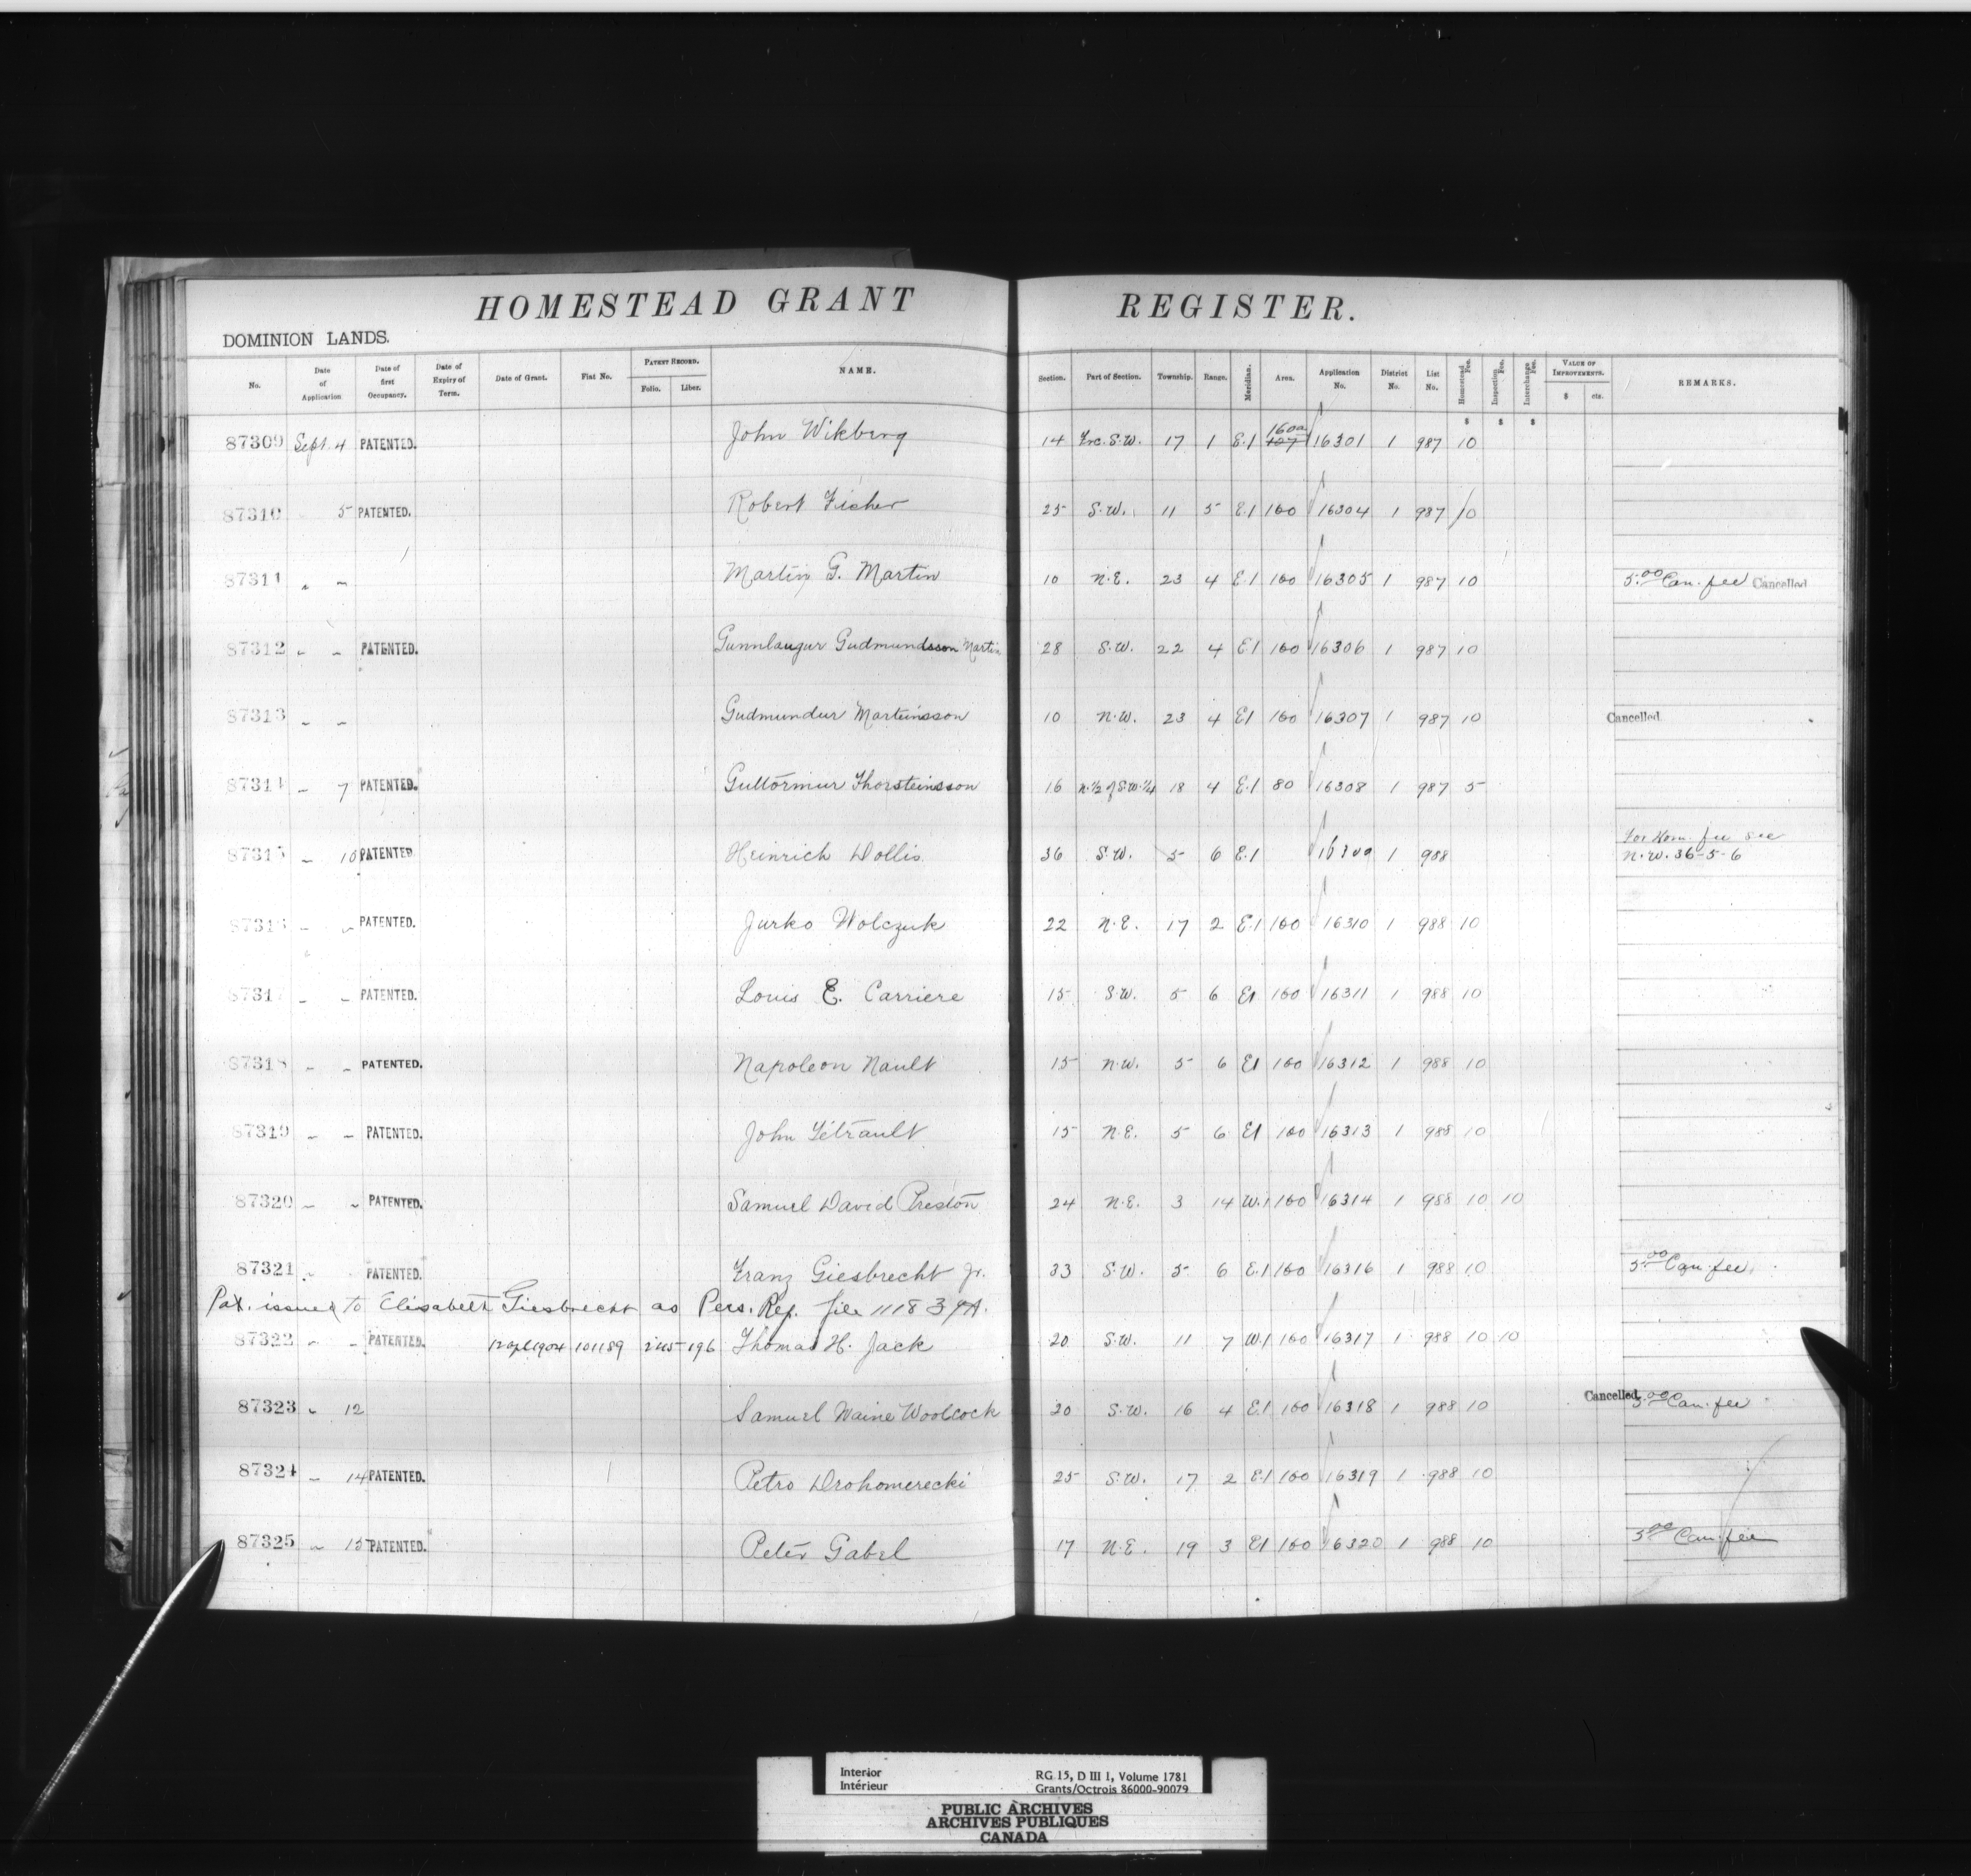 HOMESTEAD GRANT REGISTER.
DOMINION LANDS.
No. Date of Application Date of first Occupancy. Date of Expiry of Term. Date of Grant. Fiat No. PATENT RECORD. Folio. Liber. NAME. Section. Part of Section. Township. Range. Meridian. Area. Application No. District No. List No. Homestead Fee. Inspection Fee. Interchange Fee. VALUE OF IMPROVEMENTS. $ cts. REMARKS.
$ $ $
87309 Sept. 4 PATENTED. John Wikberg 14 Frc. S.W. 17 1 E.1 160a 107 16301 1 987 10
87310 5 PATENTED. Robert Fisher 25 S.W. 11 5 E.1 160 16304 1 987 10
87311 " " Martin G. Martin 10 N.E. 23 4 E.1 160 16305 1 987 10 5.00 Can. fee Cancelled
87312 " " PATENTED. Gunnlaugur Gudmundsson Martin 28 S.W. 22 4 E.1 160 16306 1 987 10
87313 " " Gudmundur Marteinsson 10 N.W. 23 4 E1 160 16307 1 987 10 Cancelled
87314 " 7 PATENTED. Guttormur Thorsteinsson 16 N.½ of S.W.¼ 18 4 E.1 80 16308 1 987 5
For Hom. fee see
87315 " 10 PATENTED Heinrich Dollis. 36 S.W. 5 6 E.1 16309 1 988 N.W. 36-5-6
87316 " " PATENTED. Jurko Wolczuk 22 N.E. 17 2 E.1 160 16310 1 988 10
87317 " " PATENTED. Louis E. Carriere 15 S.W. 5 6 E1 160 16311 1 988 10
87318 " " PATENTED. Napoleon Nault 15 N.W. 5 6 E1 160 16312 1 988 10
87319 " " PATENTED. John Tétrault 15 N.E. 5 6 E1 160 16313 1 988 10
87320 " " PATENTED. Samuel David Preston 24 N.E. 3 14 W.1 160 16314 1 988 10 10
87321 " PATENTED. Franz Giesbrecht Jr. 33 S.W. 5 6 E.1 160 16316 1 988 10 5.00 Can. fee.
Pat. issued to Elisabeth Giesbrecht as Pers. Rep. file 111839A.
87322 " " PATENTED. 12 Apl 1904 101189 196 Thomas H. Jack 20 S.W. 11 7 W.1 160 16317 1 988 10 10
87323 " 12 Samuel Waine Woolcock 20 S.W. 16 4 E.1 160 16318 1 988 10 Cancelled 5.00 Can. fee
87324 " 14 PATENTED. Petro Drohomerecki 25 S.W. 17 2 E.1 160 16319 1 988 10
87325 " 15 PATENTED. Peter Gabel 17 N.E. 19 3 E1 160 16320 1 988 10 5.00 Can. fee
Interior RG 15, D III 1, Volume 1781
Intérieur Grants/Octrois 86000-90079
PUBLIC ARCHIVES
ARCHIVES PUBLIQUES
CANADA